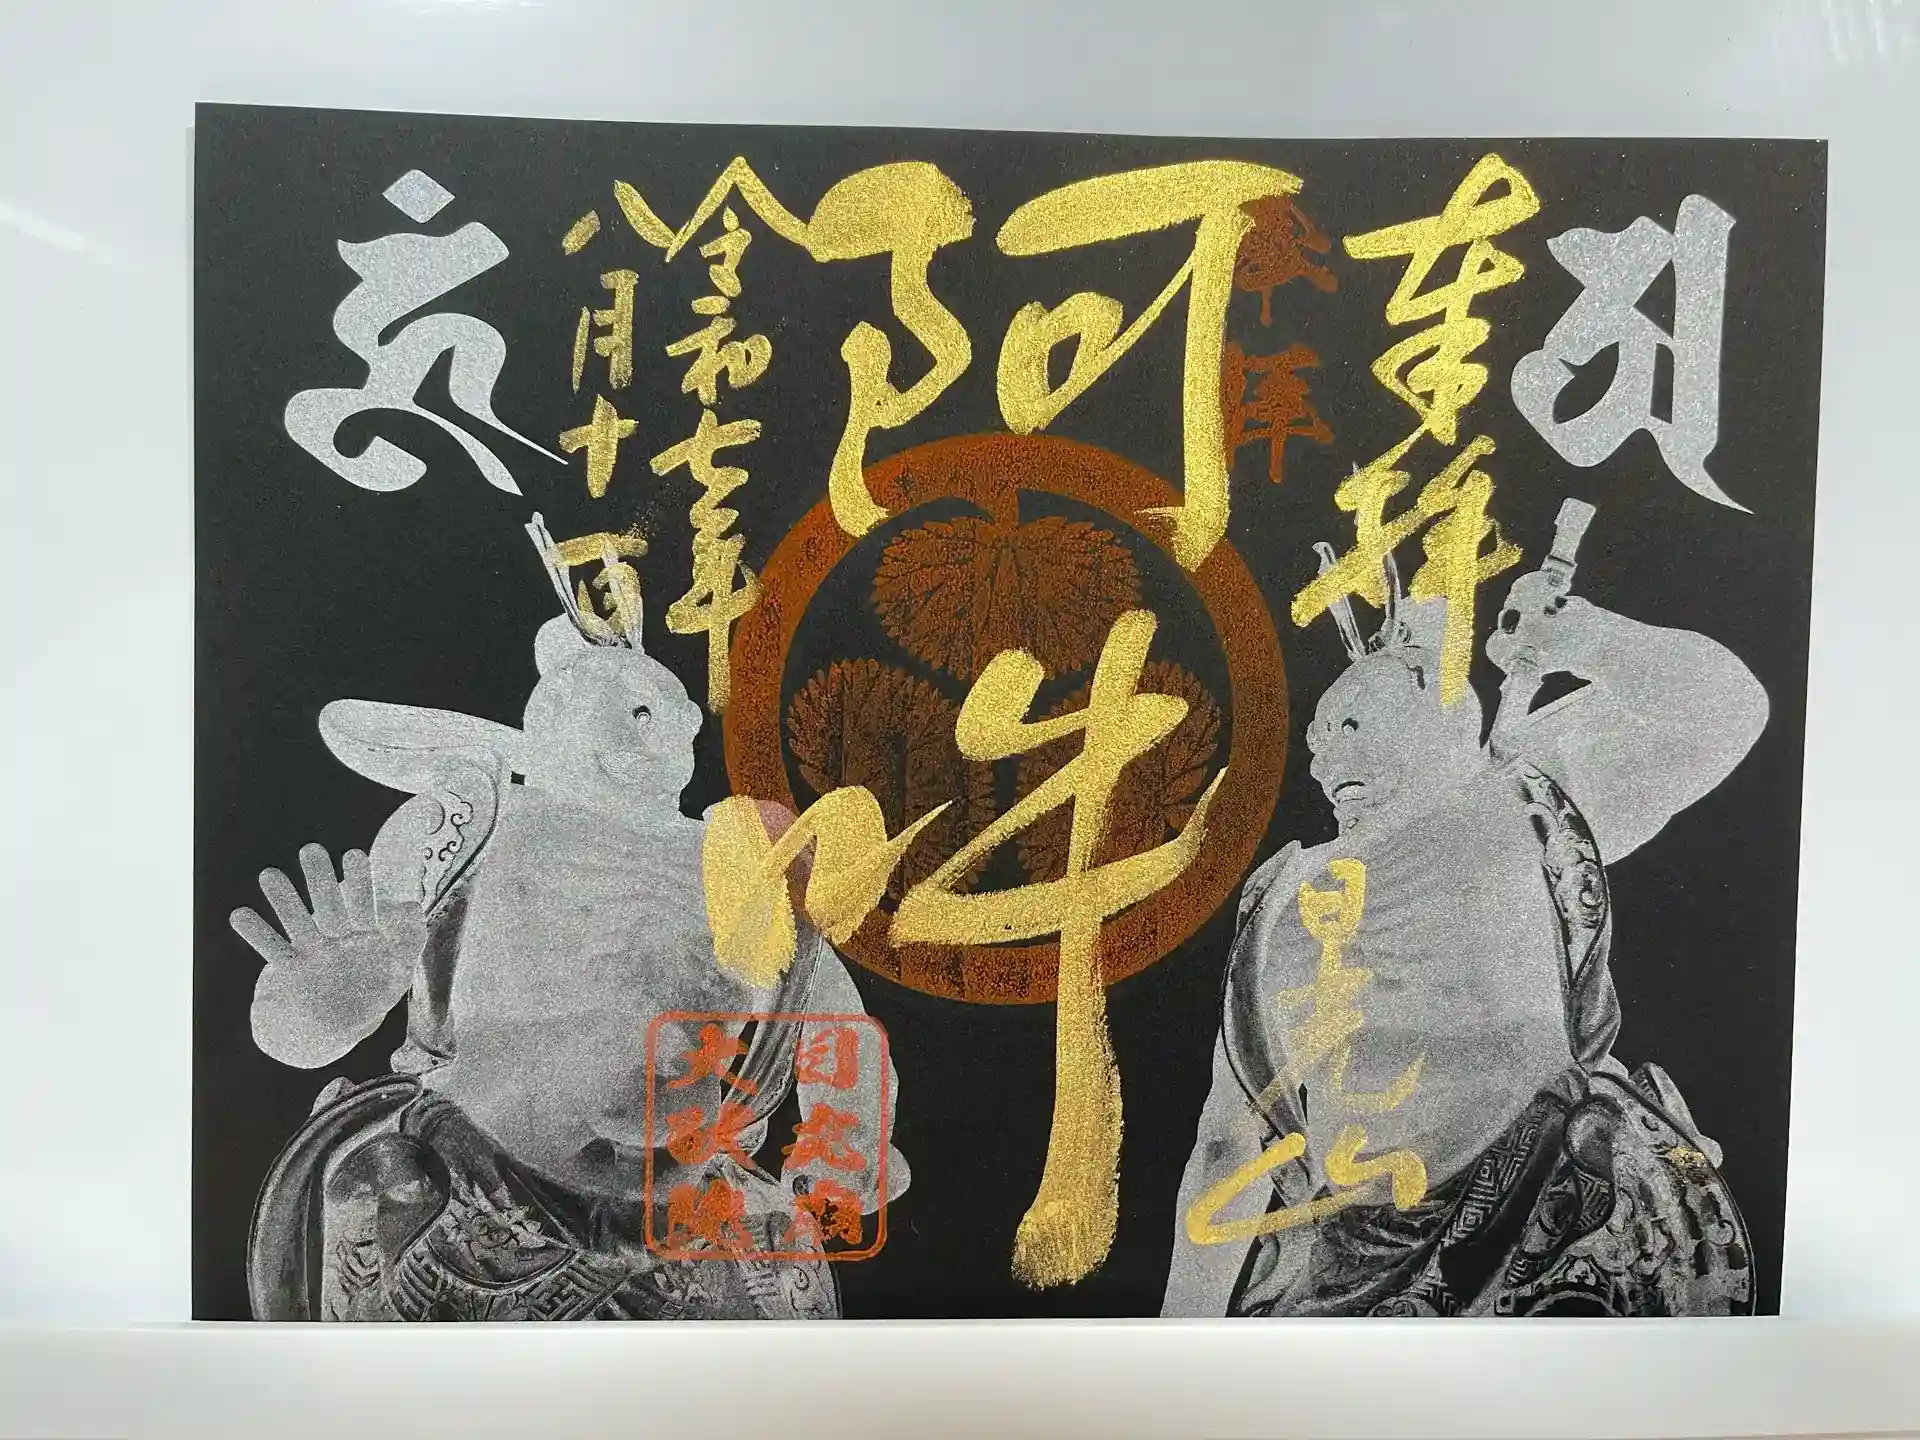 奉拝
日光山
奉拝
阿吽
令和七年
八月十一日
日光廟
大猷院